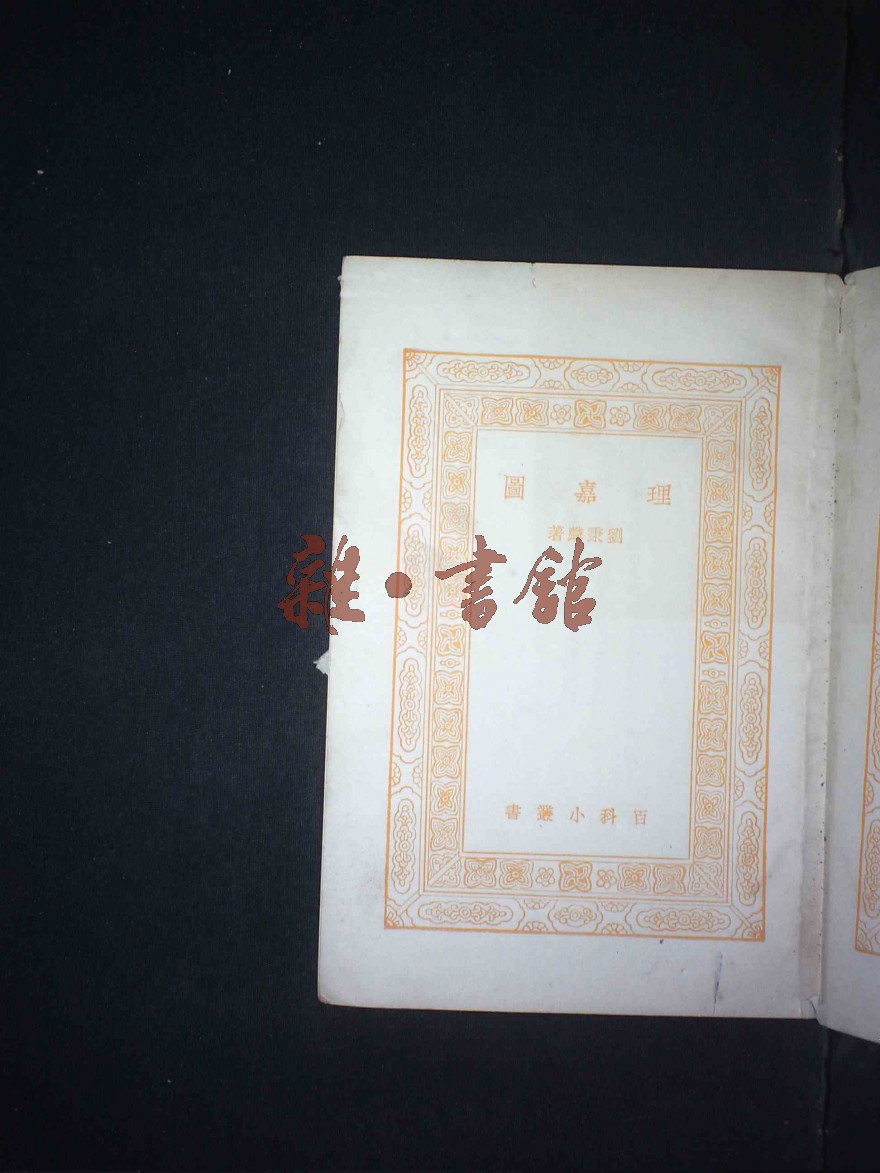 理嘉圖
劉秉麟著
百科小叢書
雜·書館